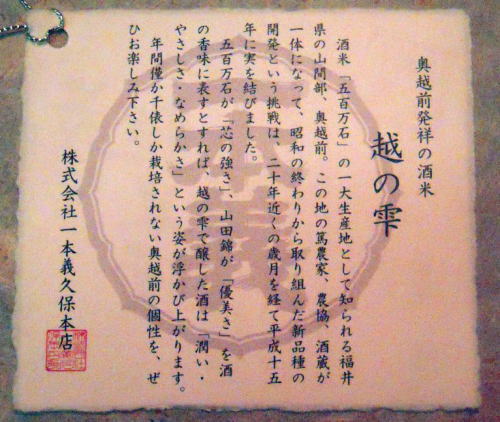 奥越前発祥の酒米
越の雫
酒米「五百万石」の一大生産地として知られる福井
県の山間部、奥越前。この地の篤農家、農協、酒蔵が
一体になって、昭和の終わりから取り組んだ新品種の
開発という挑戦は、二十年近くの歳月を経て平成十五
年に実を結びました。
五百万石が「芯の強さ」、山田錦が「優美さ」を酒
の香味に表すとすれば、越の雫で醸した酒は「潤い・
やさしさ・なめらかさ」という姿が浮かび上がります。
年間僅か千俵しか栽培されない奥越前の個性を、ぜ
ひお楽しみ下さい。
株式会社一本義久保本店
一本義